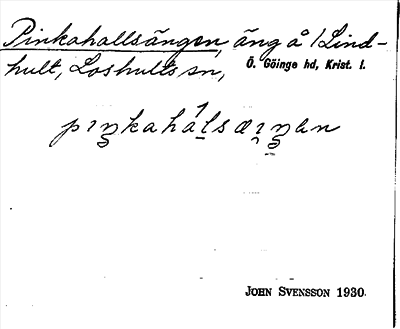 Pinkahallsängen, äng å 1 Lind-
hult, Loshults sn, Ö. Göinge hd, Krist. l.
JOHN SVENSSON 1930.